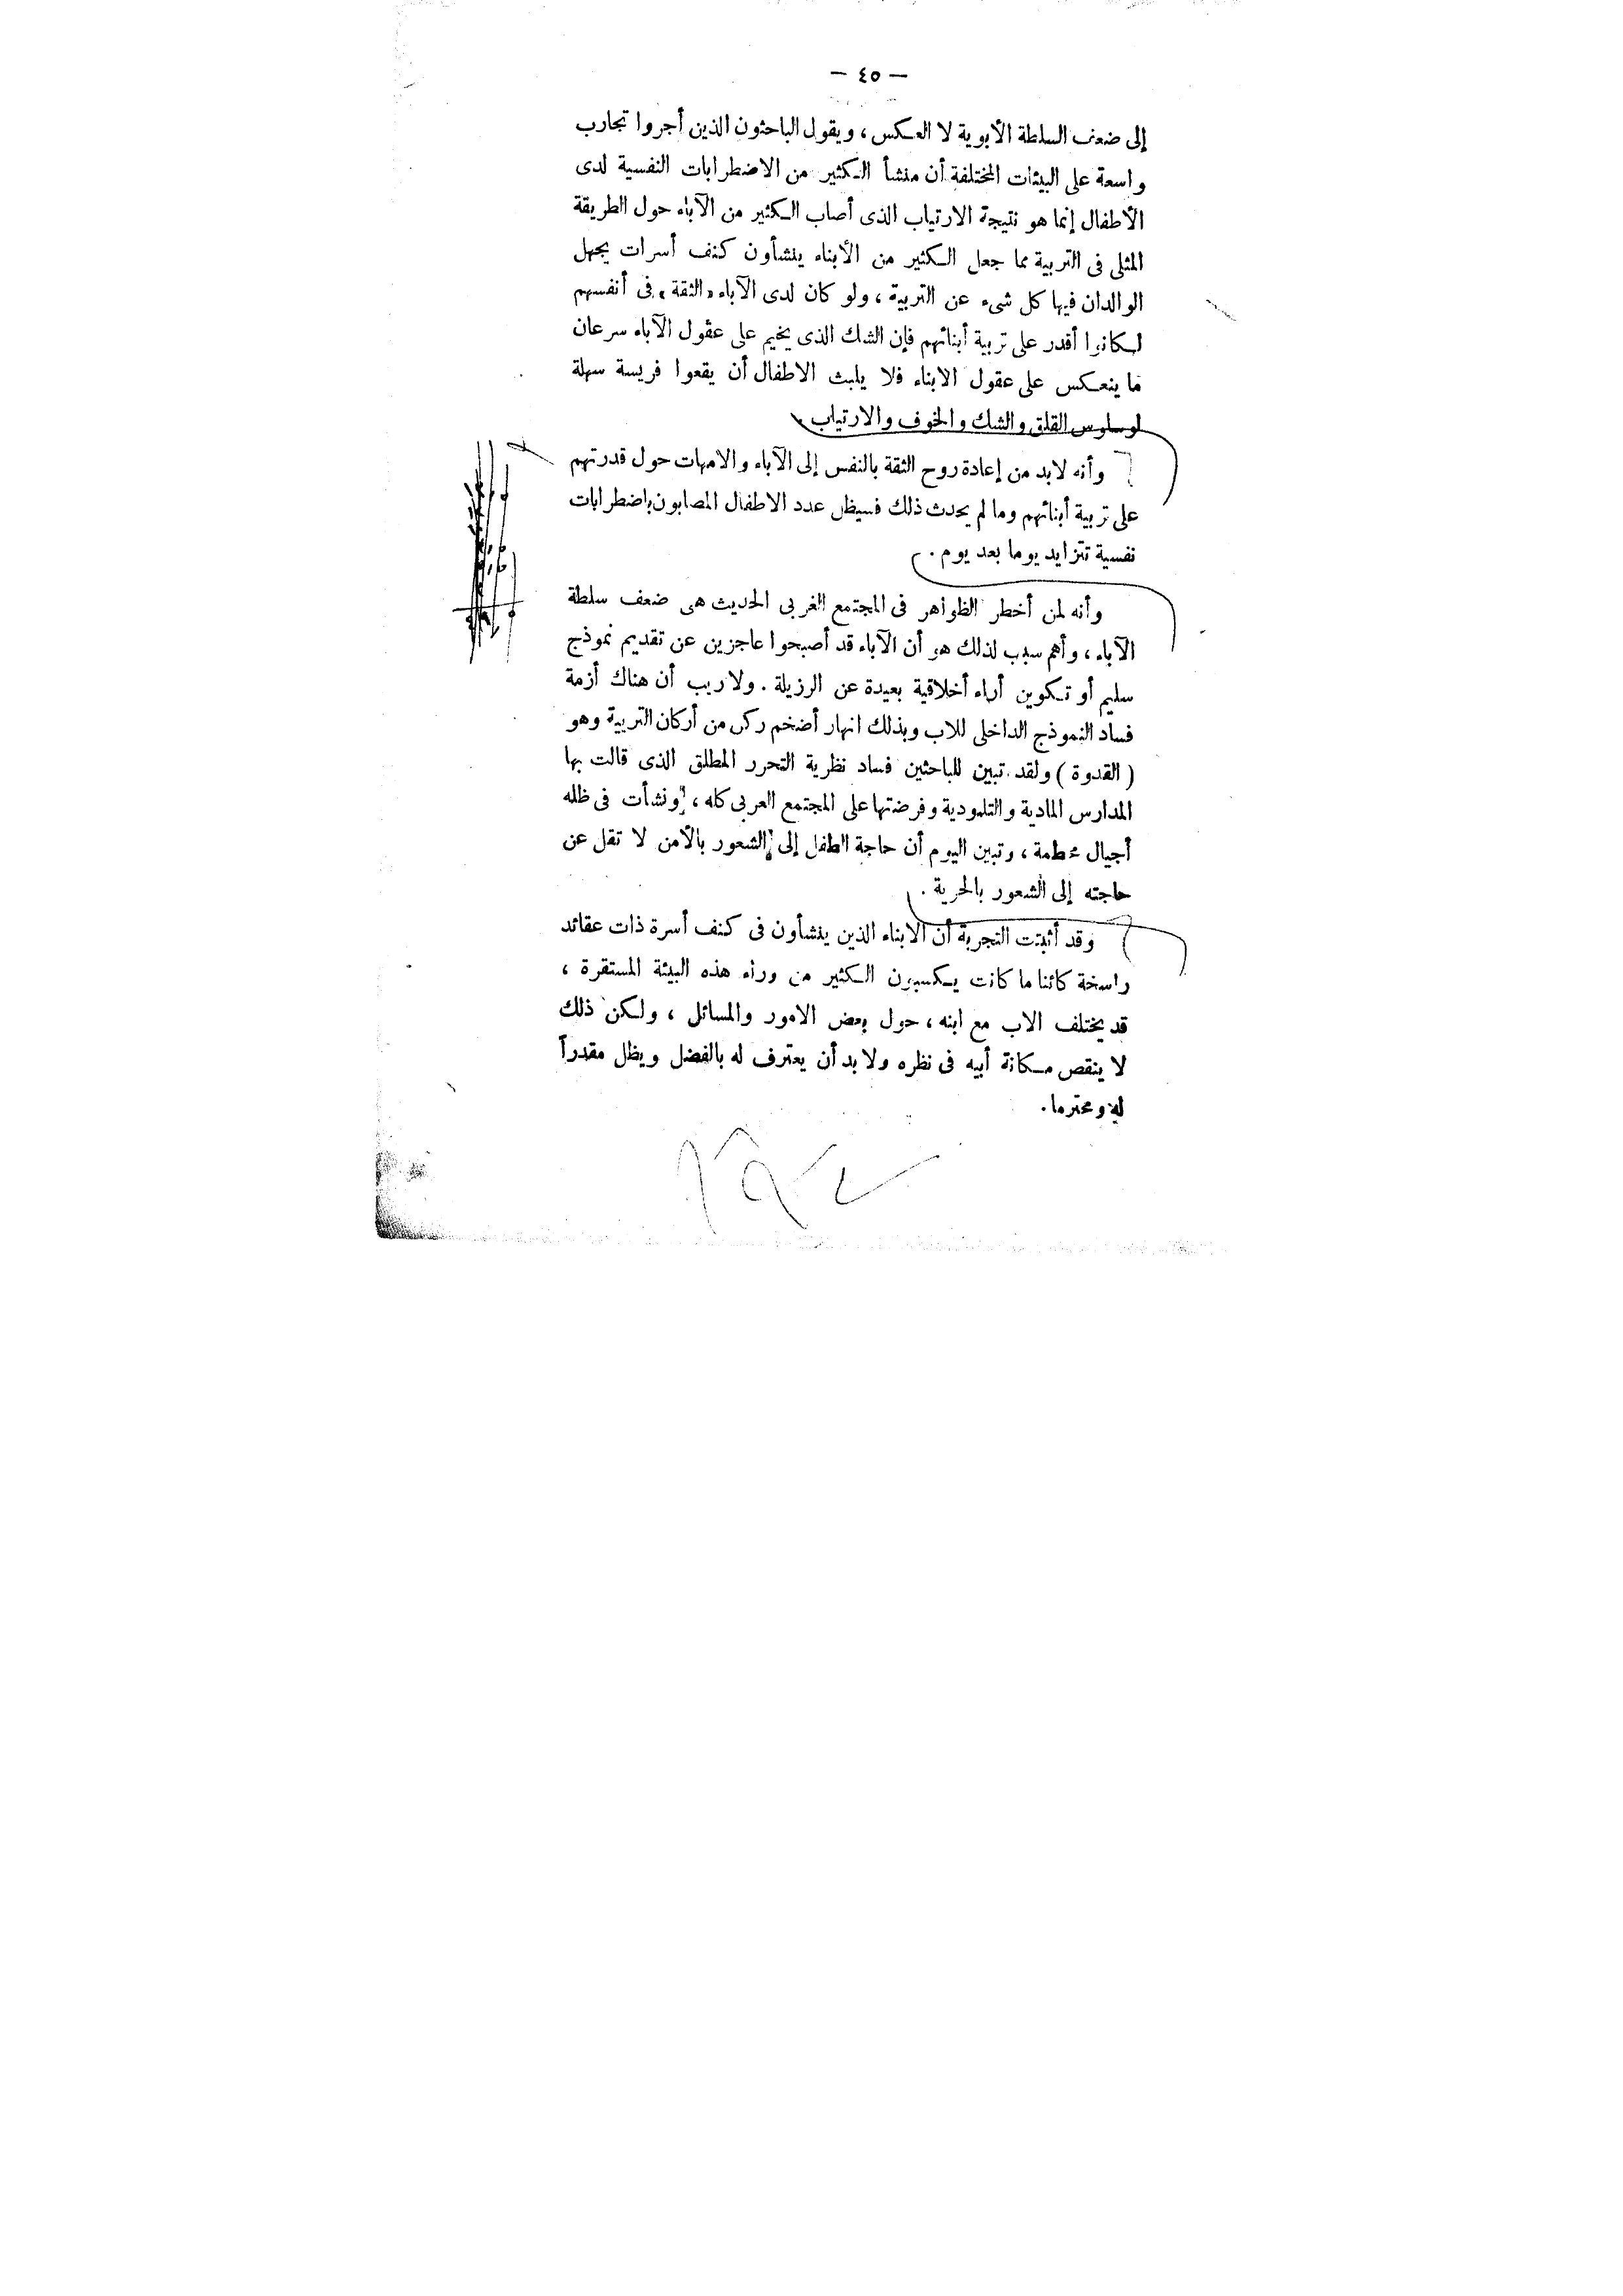 — ٤٥ —
إلى ضعف السلطة الأبوية لا العكس، ويقول الباحثون الذين أجروا تجارب
واسعة على البيئات المختلفة أن منشأ الكثير من الاضطرابات النفسية لدى
الأطفال إنما هو نتيجة الارتياب الذى أصاب الكثير من الآباء حول الطريقة
المثلى فى التربية مما جعل الكثير من الأبناء ينشأون كنف أسرات يجهل
الوالدان فيها كل شىء عن التربية، ولو كان لدى الآباء «الثقة» فى أنفسهم
لكانوا أقدر على تربية أبنائهم فإن الشك الذى يخيم على عقول الآباء سرعان
ما ينعكس على عقول الابناء فلا يلبث الاطفال أن يقعوا فريسة سهلة
لوساوس القلق والشك والخوف والارتياب.
وأنه لابد من إعادة روح الثقة بالنفس إلى الآباء والامهات حول قدرتهم
على تربية أبنائهم وما لم يحدث ذلك فسيظل عدد الاطفال المصابون باضطرابات
نفسية تتزايد يوما بعد يوم.
وأنه لمن أخطر الظواهر فى المجتمع الغربى الحديث هى ضعف سلطة
الآباء، وأهم سبب لذلك هو أن الآباء قد أصبحوا عاجزين عن تقديم نموذج
سليم أو تكوين أراء أخلاقية بعيدة عن الرزيلة. ولاريب أن هناك أزمة
فساد النموذج الداخلى للاب وبذلك انهار أضخم ركن من أركان التربية وهو
(القدوة) ولقد تبين للباحثين فساد نظرية التحرر المطلق الذى قالت بها
المدارس المادية والتلمودية وفرضتها على المجتمع العربى كله، ونشأت فى ظله
أجيال محطمة، وتبين اليوم أن حاجة الطفل إلى الشعور بالأمن لا تقل عن
حاجته إلى الشعور بالحرية.
وقد أثبتت التجربة أن الابناء الذين ينشأون فى كنف أسرة ذات عقائد
راسخة كائنا ما كانت يكسبون الكثير من وراء هذه البيئة المستقرة،
قد يختلف الاب مع ابنه، حول بعض الامور والمسائل، ولكن ذلك
لا ينقص مكانة أبيه فى نظره ولابد أن يعترف له بالفضل ويظل مقدراً
له ومحترما.